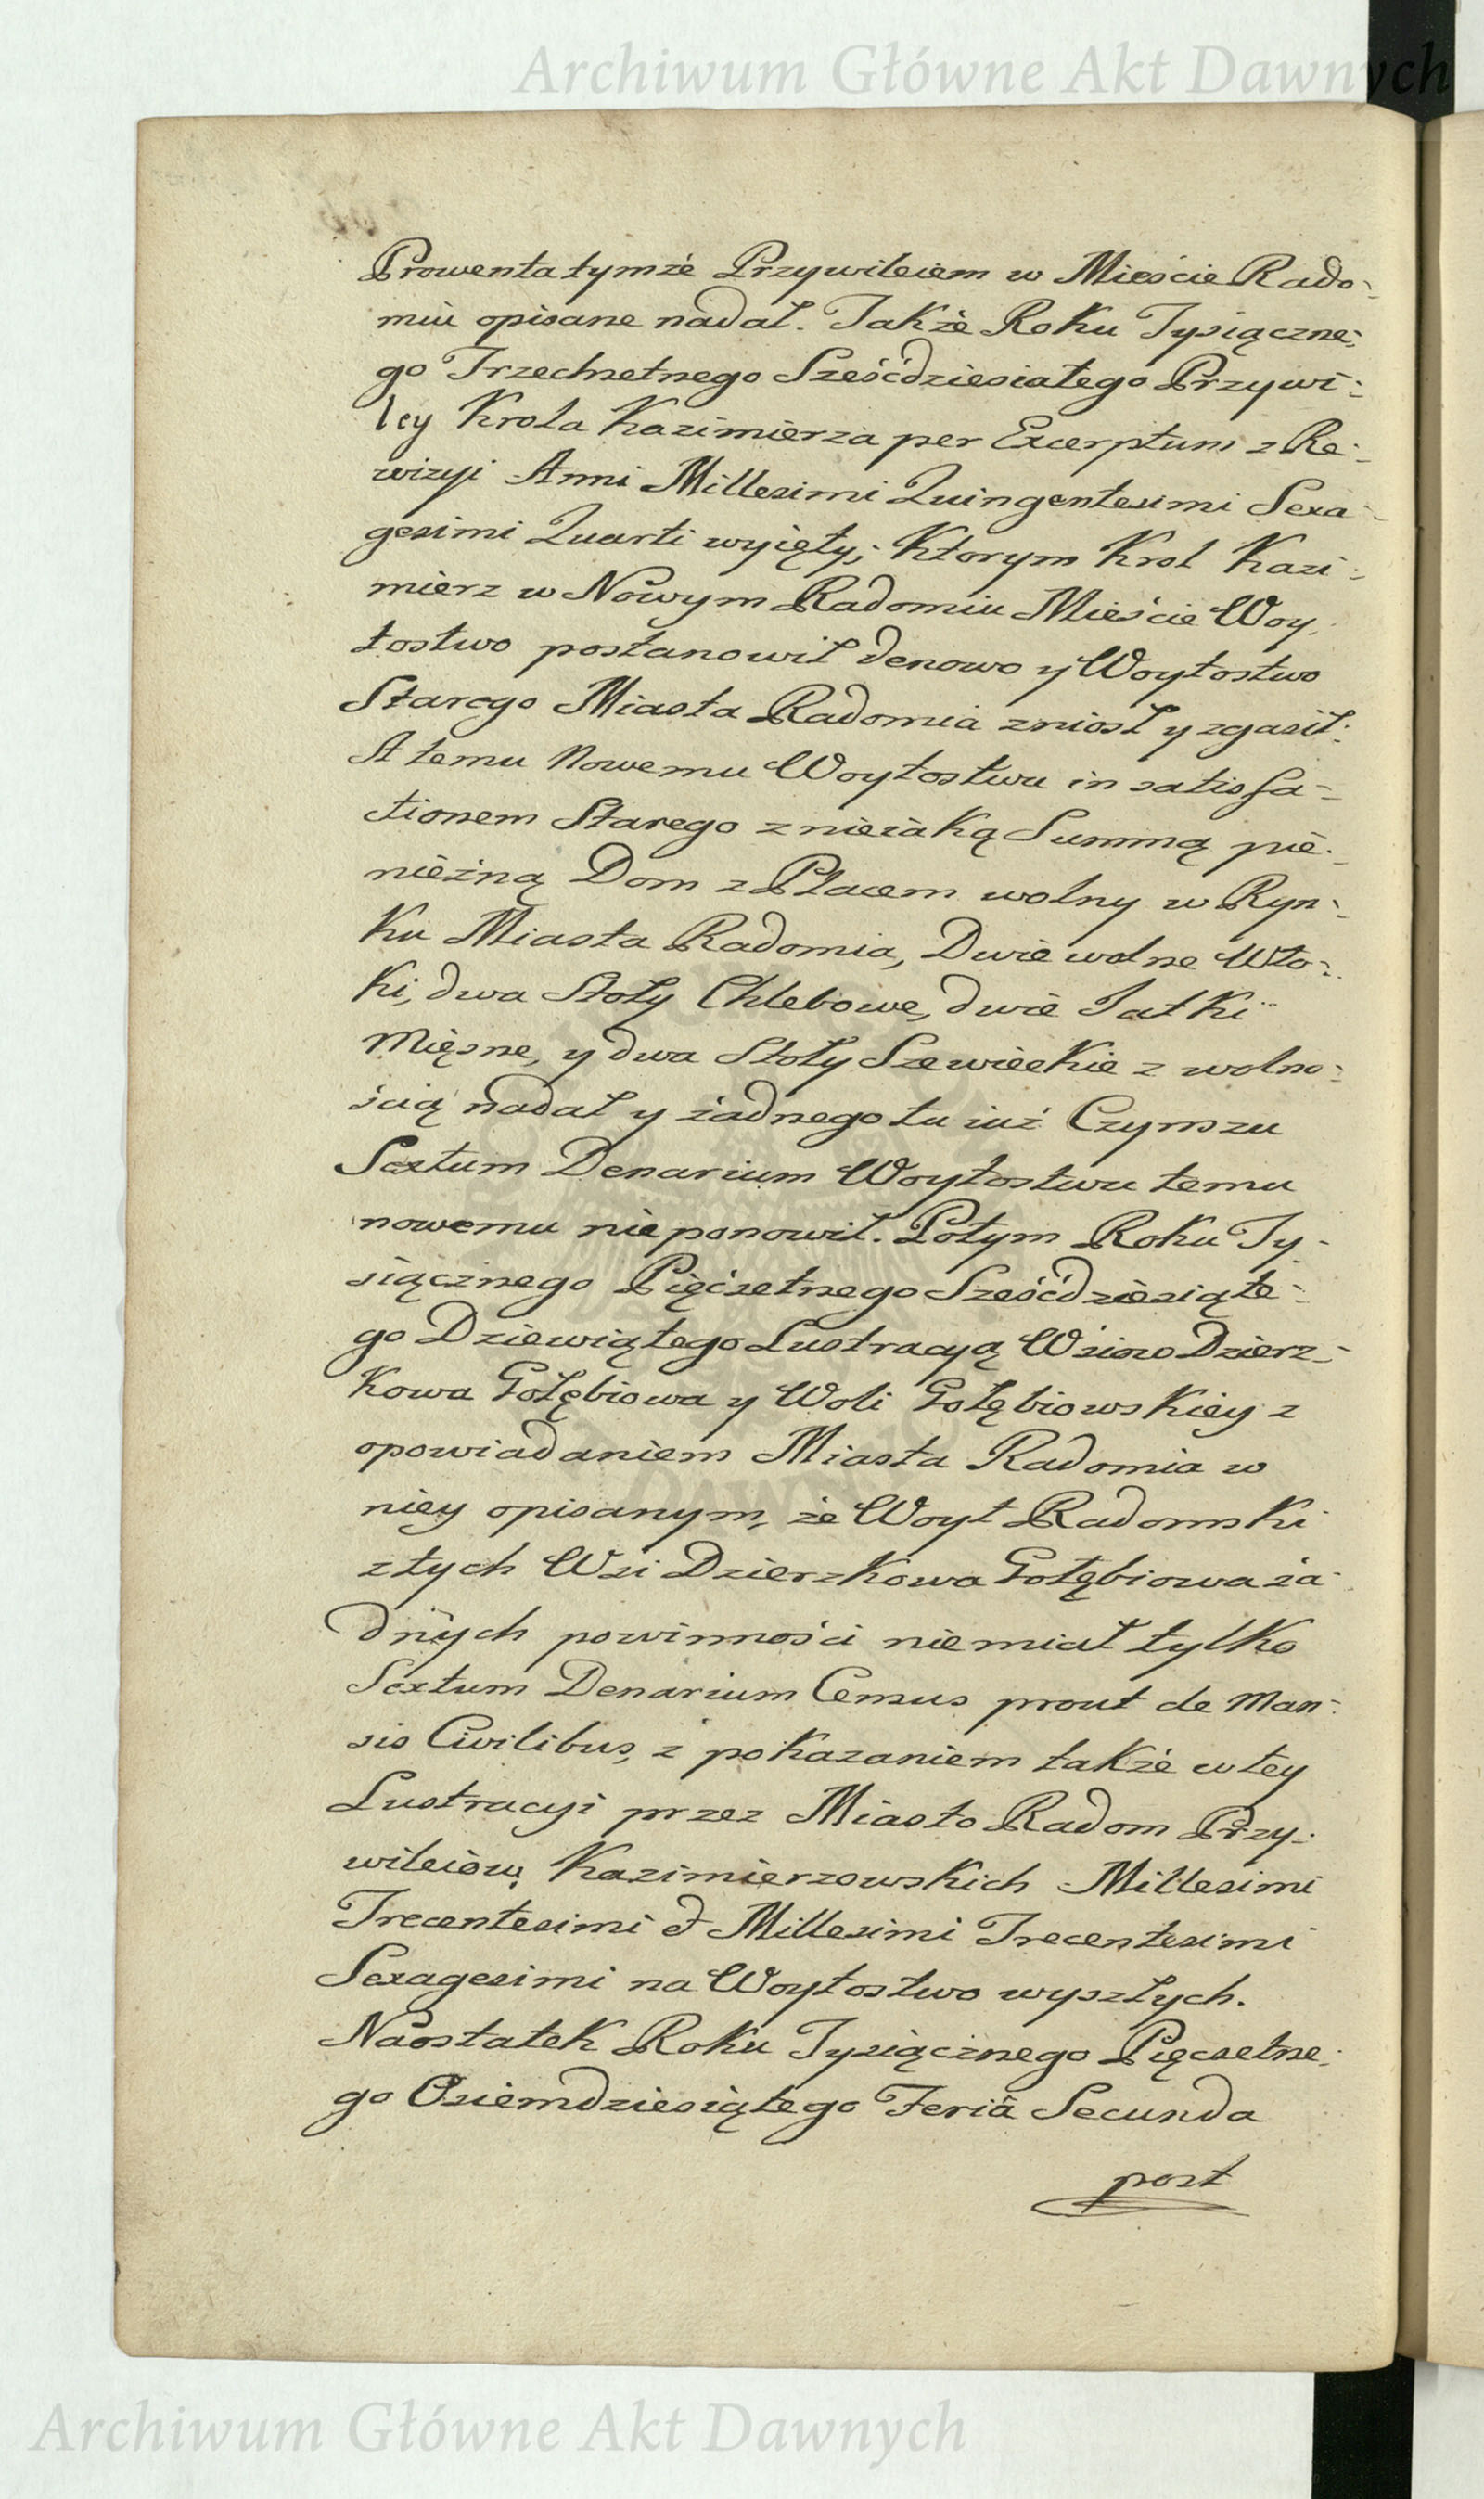 Archiwum Główne Akt Dawnych
Prowenta tymże Przywileiem w Mieście Rado-
miu opisane nadał. Także Roku Tysiączne-
go Trzechsetnego Sześćdziesiatego Przywi-
ley Krola Kazimierza per Excerptum z Re-
wizyi Anni Millesimi Quingentesimi Sexa-
gesimi Quarti wyięty; Ktorym Krol Kazi-
mierz w Nowym Radomiu Mieście Woy-
tostwo postanowił denowo y Woytostwo
Starego Miasta Radomia zniosł y zgasił:
A temu Nowemu Woytostwu in satisfa-
ctionem Starego z nieiaką Summą pie-
nieżną Dom z Placem wolny w Ryn-
ku Miasta Radomia, Dwie wolne Wło-
ki, dwa Stoły Chlebowe, dwie Jatki
Mięsne, y dwa Stoły Szewieckie z wolno-
ścią nadał y żadnego tu iuż Czynszu
Sextum Denarium Woytostwu temu
nowemu nie ponowił. Potym Roku Ty-
siącznego Pięćsetnego Sześćdziesiąte-
go Dziewiątego Lustracyą Wsiow Dzierz-
kowa Gołębiowa y Woli Gołębiowskiey z
opowiadaniem Miasta Radomia w
niey opisanym, że Woyt Radomski
z tych Wsi Dzierzkowa Gołębiowa ża-
dnych powinności niemiał tylko
Sextum Denarium Census prout de Man-
sis Civilibus, z pokazaniem także w tey
Lustracyi przez Miasto Radom Przy-
wileiow Kazimierzowskich Millesimi
Trecentesimi & Millesimi Trecentesimi
Sexagesimi na Woytostwo wyszłych.
Naostatek Roku Tysiącznego Pięcsetne-
go Osiemdziesiątego Feriâ Secunda
post
Archiwum Główne Akt Dawnych